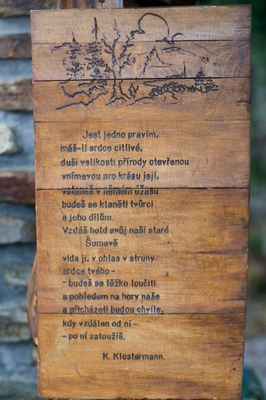 Jest jedno pravím,
máš-li srdce citlivé,
duši velikosti přírody otevřenou
vnímavou pro krásu její,
v úžasu
budeš se klaněti tvůrci
a jeho dílům.
Vzdáš hold svůj naší staré
Šumavě
vida ji, v ohlas v struny
srdce tvého -
- budeš se těžko loučiti
s pohledem na hory naše
a přicházeti budou chvíle,
kdy vzdálen od ní -
- po ní zatoužíš.
K. Klostermann.